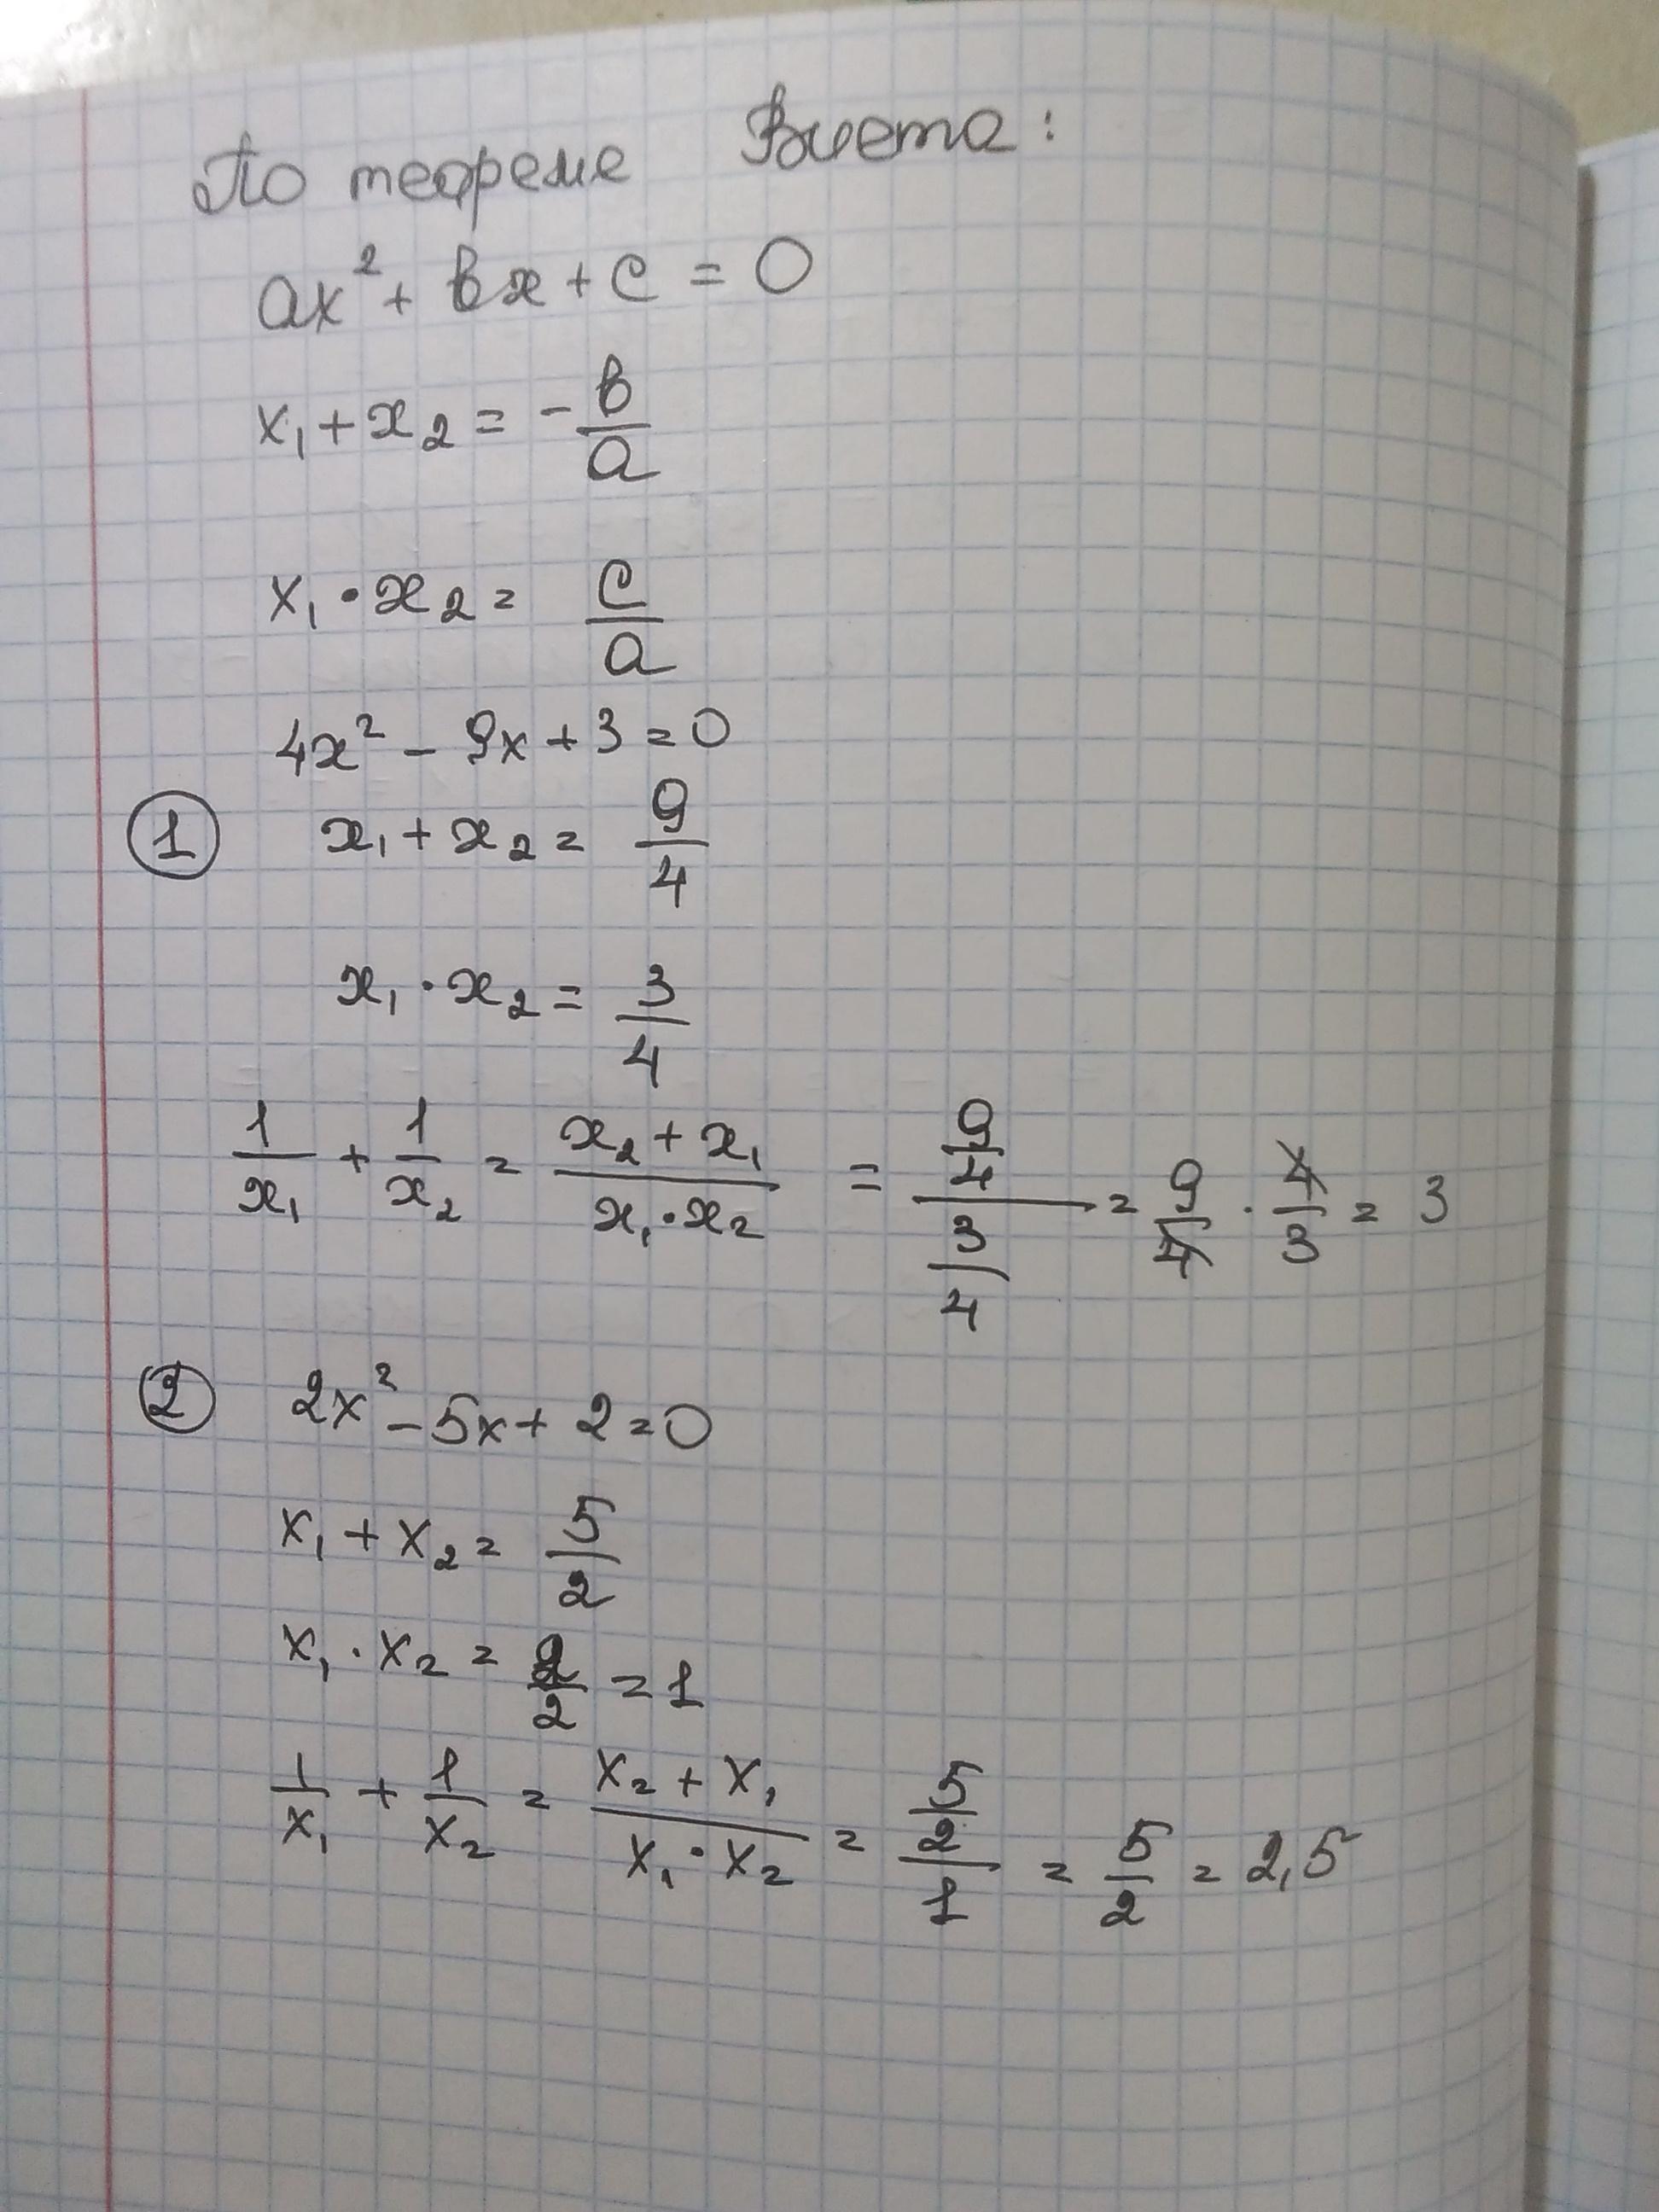 По теореме Виета:
ax² + bx + c = 0
x₁ + x₂ = - b/a
x₁ · x₂ = c/a
4x² - 9x + 3 = 0
① x₁ + x₂ = 9/4
x₁ · x₂ = 3/4
1/x₁ + 1/x₂ = (x₂ + x₁)/(x₁ · x₂) = (9/4)/(3/4) = 9/4 · 4/3 = 3
② 2x² - 5x + 2 = 0
x₁ + x₂ = 5/2
x₁ · x₂ = 2/2 = 1
1/x₁ + 1/x₂ = (x₂ + x₁)/(x₁ · x₂) = (5/2)/1 = 5/2 = 2,5